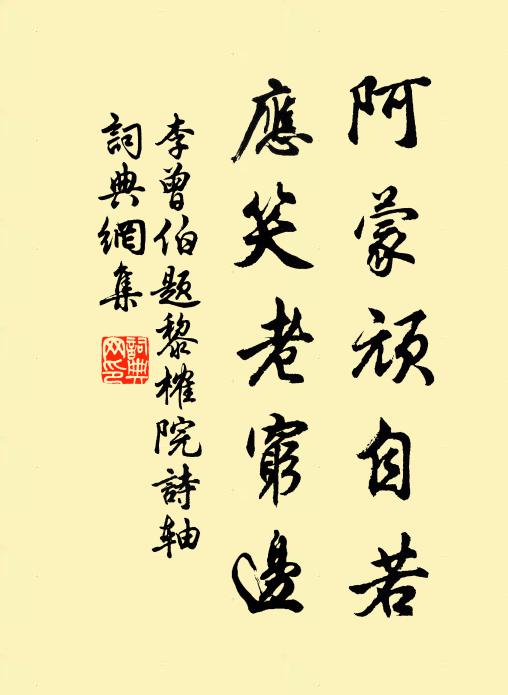 阿蒙頑自若
應笑老窮邊
李曾伯題黎榷院詩軸
詞典網集
詞典網印